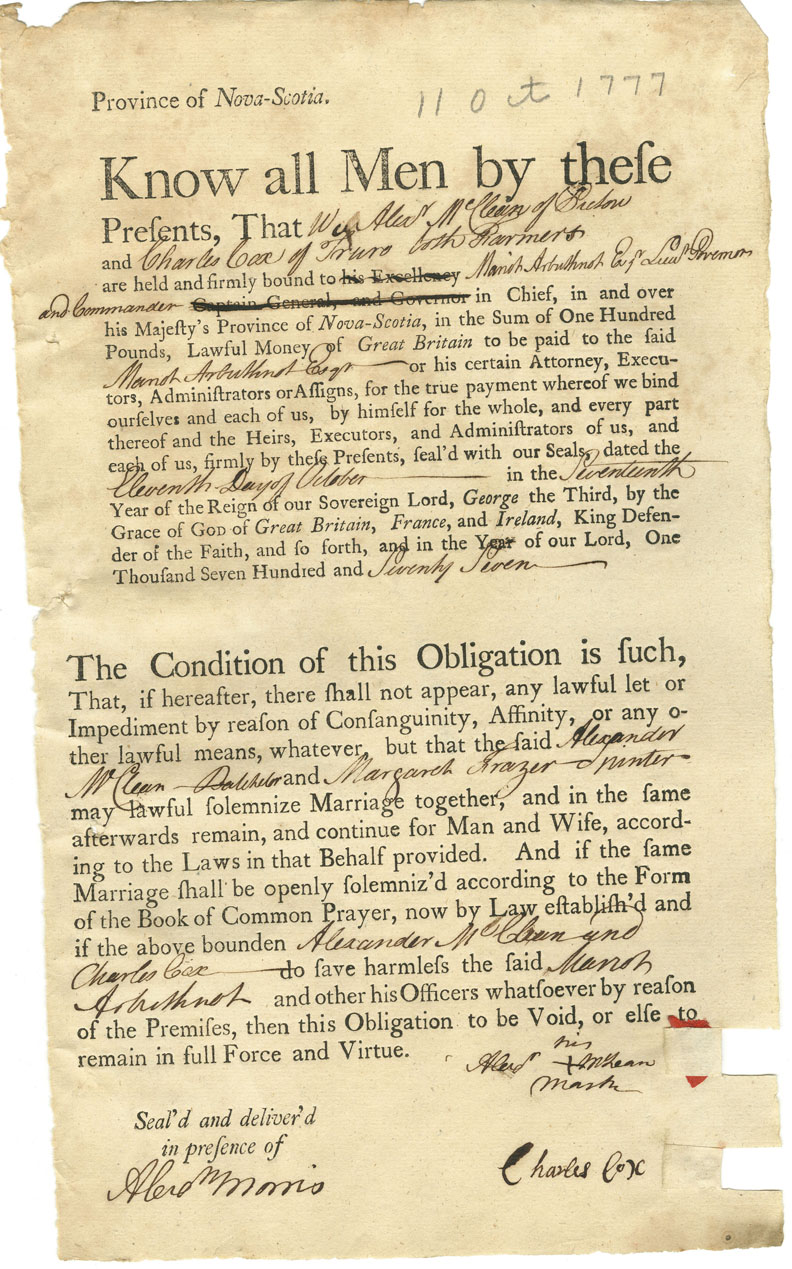 Province of Nova-Scotia.
11 Oct 1777
Know all Men by theſe
Preſents, That We Alexr McClean of Pictou
and Charles Cox of Truro both Farmers
are held and firmly bound to his Excellency Mariot Arbuthnot Esqr Lieut Governor
and Commander Captain General, and Governor in Chief, in and over
his Majeſty's Province of Nova-Scotia, in the Sum of One Hundred
Pounds, Lawful Money of Great Britain to be paid to the ſaid
Mariot Arbuthnot Esqr or his certain Attorney, Execu-
tors, Adminiſtrators or Aſſigns, for the true payment whereof we bind
ourſelves and each of us, by himſelf for the whole, and every part
thereof and the Heirs, Executors, and Adminiſtrators of us, and
each of us, firmly by theſe Preſents, ſeal'd with our Seals, dated the
Eleventh Day of October in the Seventeenth
Year of the Reign of our Sovereign Lord, George the Third, by the
Grace of God of Great Britain, France, and Ireland, King Defen-
der of the Faith, and ſo forth, and in the Year of our Lord, One
Thouſand Seven Hundred and Seventy Seven
The Condition of this Obligation is ſuch,
That, if hereafter, there ſhall not appear, any lawful let or
Impediment by reaſon of Conſanguinity, Affinity, or any o-
ther lawful means, whatever, but that the ſaid Alexander
McClean Batchelor and Margaret Frazer Spinter
may lawful ſolemnize Marriage together, and in the ſame
afterwards remain, and continue for Man and Wife, accord-
ing to the Laws in that Behalf provided. And if the ſame
Marriage ſhall be openly ſolemniz'd according to the Form
of the Book of Common Prayer, now by Law eſtabliſh'd and
if the above bounden Alexander McClean and
Charles Cox do ſave harmleſs the ſaid Mariot
Arbuthnot and other his Officers whatſoever by reaſon
of the Premiſes, then this Obligation to be Void, or elſe to
remain in full Force and Virtue.
his
Alexr + McLean
mark
Seal'd and deliver'd
in preſence of
Morris
Charles Cox